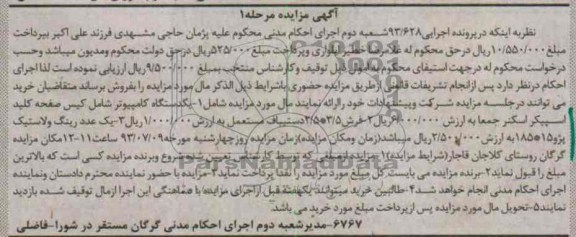 آگهی مزایده مرحله۱
نظربه اینکه درپرونده اجرایی۹۳/۶۲۸شعبه دوم اجرای احکام مدنی محکوم علیه پژمان حاجی مشهدی فرزند علی اکبر بپرداخت
مبلغ۱۰/۵۵۰/۰۰۰ریال درحق محکوم له غلامرضا خطیر ایلواری وپرداخت مبلغ۵۲۵/۰۰۰ریال درحق دولت محکوم ومدیون میباشد وحسب
درخواست محکوم له درجهت استیفای محکوم به اموال ذیل توقیف وکارشناس منتخب بمبلغ ۹/۵۰۰/۰۰۰ریال ارزیابی نموده است لذا اجرای
احکام درنظر دارد پس ازانجام تشریفات قانونی ازطریق مزایده حضوری باشرایط ذیل الذکر مال مورد مزایده را بفروش برساند متقاضیان خرید
می توانند درجلسه مزایده شرکت وپیشنهادات خود راارائه نمایند مال مورد مزایده شامل۱-یکدستگاه کامپیوتر شامل کیس صفحه کلید
اسپیکر اسکنر جمعا به ارزش ریال۲-فرش ۳/۵*۲/۵ دستباف مستعمل به ارزش ریال۳-یک عدد رینگ ولاستیک
پژو۱۵*۱۸۵به ارزش ۲/۵۰۰/۰۰۰ریال میباشد(زمان ومکان مزایده)زمان مزایده روزچهارشنبه مورخه۹۳/۰۷/۰۹ ساعت۱۱-۱۲مکان مزایده
گرگان روستای کلاجان قاجار(شرایط مزایده)۱-مزایده ازمبلغی که توسط کارشناس تعیین شده شروع وبرنده مزایده کسی است که بالاترین
مبلغ را قبول نماید۲-برنده مزایده می بایست کل مبلغ مورد مزایده را نقدا پرداخت نماید۳-مزایده با حضور نماینده محترم دادستان ونماینده
اجرای احکام مدنی انجام خواهد شد۴-طالبین خرید میتوانند یکهفته قبل ازاجرای مزایده با هماهنگی این اجرا ازمال توقیف شده بازدید
نمایند۵-تحویل مال مورد مزایده پس ازپرداخت مبلغ مورد خرید می باشد.
۶۷۶۷-مدیرشعبه دوم اجرای احکام مدنی گرگان مستقر در شورا-فاضلی